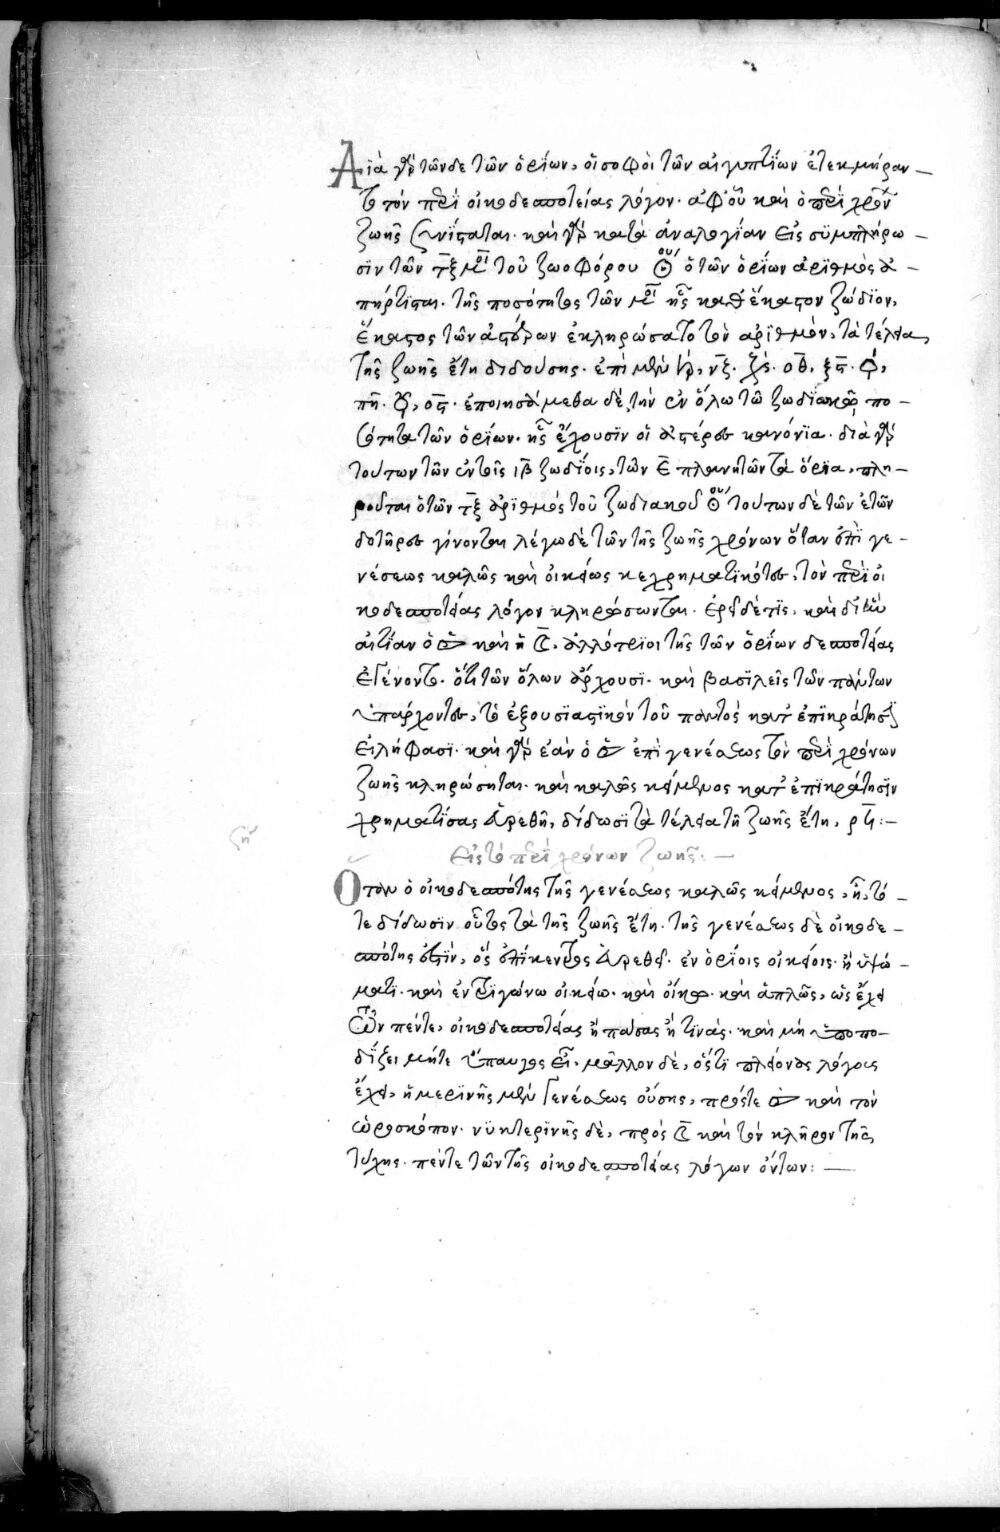 Διὰ γὰρ τῶνδε τῶν ὁρίων, οἱ σοφοὶ τῶν αἰγυπτίων ἐτεκμήραν
το τὸν περὶ οἰκοδεσποτείας λόγον. ἀφ' οὗ καὶ ὁ περὶ χρόνων
ζωῆς συνίσταται. καὶ γὰρ κατὰ ἀναλογίαν εἰς συμπλήρω
σιν τῶν τ̅ξ̅ μοι τοῦ ζωοφόρου ὁ τῶν ὁρίων ἀριθμὸς ἀ
πήρτισται. τῆς ποσότητος τῶν μοι ἧς καθ' ἕκαστον ζώδιον,
ἕκαστος τῶν ἀστέρων ἐκληρώσατο τὸν ἀριθμὸν, τὰ τέλεια
τῆς ζωῆς ἔτη διδούσης. ἐπὶ μὲν ♄, ν̅ζ̅. ο̅θ̅, ξ̅ς̅.
π̅β̅. ο̅ς̅. ἐποιησάμεθα δὲ τὴν ἐν ὅλω τῶ ζωδιακῶ πο
σότητα τῶν ὁρίων. ἧς ἔχουσιν οἱ ἀστέρες κανόνια. διὰ γὰρ
τούτων τῶν ἐν τοῖς ι̅β̅ ζωδίοις, τῶν ε̅ πλανητῶν τὰ ὅρια, πλη
ροῦται ὁ τῶν τ̅ξ̅ ἀριθμὸς τοῦ ζωδιακοῦ τούτων δὲ τῶν ἐτῶν
δοτῆρες γίνονται λέγω δὲ τῶν τῆς ζωῆς χρόνων ὅταν ἐπὶ γε
νέσεως καλῶς καὶ οἰκείως κεχρηματικότες, τὸν περὶ οἰ
κοδεσποτείας λόγον κληρώσωνται. ἐρεῖ δέ τις, καὶ δι' ἣν
αἰτίαν ὁ ☉ καὶ ἡ ☾, ἀλλότριοι τῆς τῶν ὁρίων δεσποτείας
ἐγένοντο. ὅτι τῶν ὅλων ἄρχουσι. καὶ βασιλεῖς τῶν πάντων
ὑπάρχοντες, τὸ ἐξουσιαστικὸν τοῦ παντὸς κατ' ἐπικράτησιν
εἰλήφασι. καὶ γὰρ ἐὰν ὁ ☉ ἐπὶ γενέσεως τὸν περὶ χρόνων
ζωῆς κληρώσηται. καὶ καλῶς κείμενος κατ' ἐπικράτησιν
χρηματίσας εὑρεθῆ, δίδωσι τὰ τέλεια τῆς ζωῆς ἔτη,
Εἰς τὸ περὶ χρόνων ζωῆς:
Ὅταν ὁ οἰκοδεσπότης τῆς γενέσεως καλῶς κείμενος, ἦ, τό
τε δίδωσιν οὗτος τὰ τῆς ζωῆς ἔτη. τῆς γενέσεως δὲ οἰκοδε
σπότης ἐστὶν, ὃς ἐπίκεντρος εὑρεθεῖ. ἐν ὁρίοις οἰκείοις. ἢ ὑψώ
ματι. καὶ ἐν τριγώνω οἰκείω. καὶ οἴκω. καὶ ἁπλῶς, ὡς ἔχει
τῶν πέντε, οἰκοδεσποτείας ἢ πάσας ἢ τινὰς. καὶ μὴ ὑποπο
δίζει μήτε ὕπαυγος εἶναι. μᾶλλον δὲ, ὅστις πλείονας λόγους
ἔχει, ἡμερινῆς μὲν γενέσεως οὔσης, πρός τε ☉ καὶ τὸν
ὡροσκόπον. νυκτερινῆς δὲ, πρὸς ☾ καὶ τὸν κλῆρον τῆς
τύχης. πέντε τῶν τῆς οἰκοδεσποτείας λόγων ὄντων: